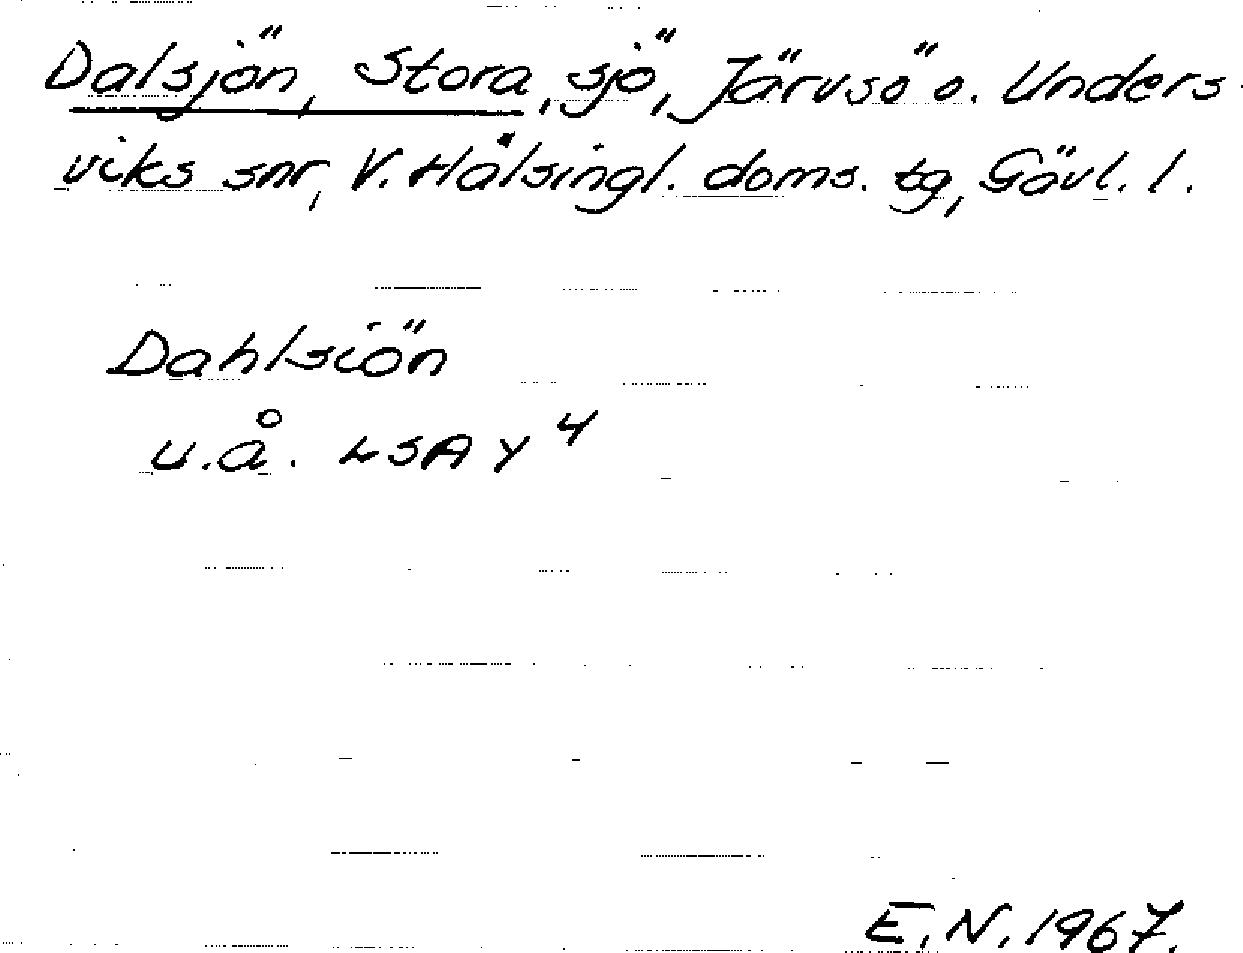 Dalsjön, Stora, sjö, Järvsö o. Unders-
viks snr, V. Hälsingl. doms. tg, Gävl. l.
Dahlsiön
u.å. LSA Y 4
E.N. 1967.